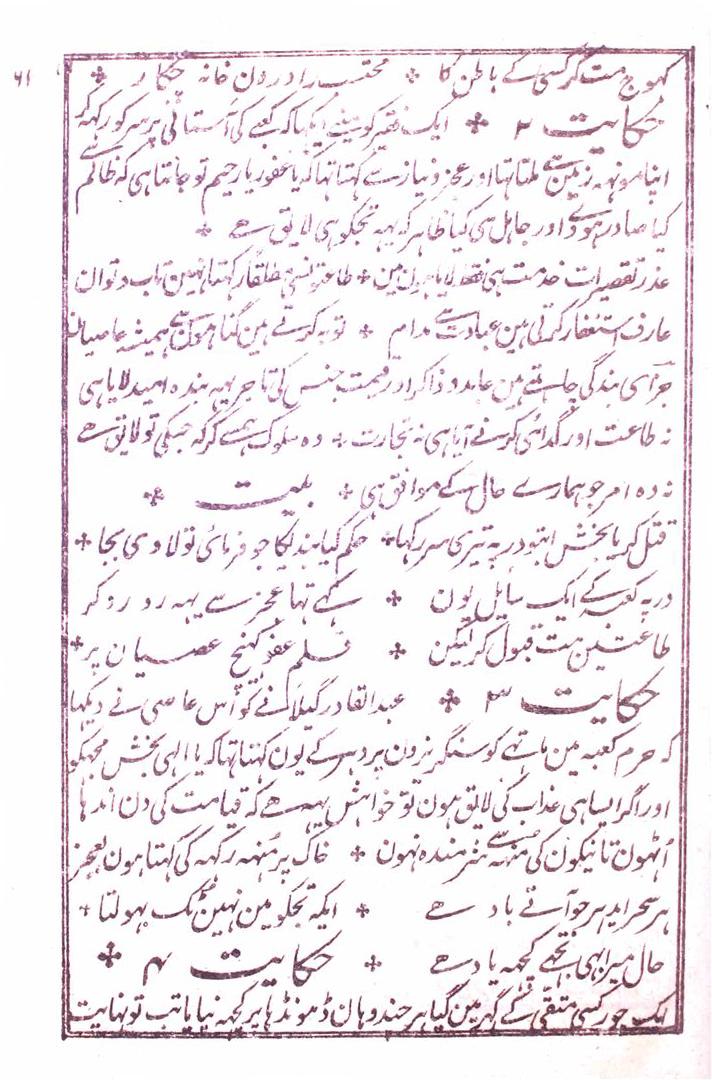 ۶۱
کہوج مت کر کسی کے باطن کا ٭ محتسب را درون خانہ چکار ٭
حکایت ۲ ٭ ایک فقیر کو مینے دیکہا کہ کعبے کی آستانی پر سر کو رکہہ کر
اپنا مونہہ زمین سے ملتا تہا اور عجز و نیاز سے کہتا تہا کہ یا غفور یا رحیم تو جانتا ہی کہ ظالم سے
کیا صادر ہووے اور جاہل سی کیا ظاہر کہ یہہ تجکو ہی لایق ہے ٭
عذر تقصیرات خدمت ہی فقط لایا ہون مین ٭ طاعتونسی مطلقا رکہتا نہین تاب و توان
عارف استغفار کرتی ہین عبادت سے مدام ٭ توبہ کرتے ہین گناہون سے ہمیشہ عاصیان
جزای بندگی چاہتے ہین عابد و ذاکر اور قیمت جنس کی تاجر یہہ بندہ امید لایا ہی
نہ طاعت اور گدائی کرنے آیا ہی نہ تجارت ٭ وہ سلوک ہمسے کر کہ جسکی تو لایق ہے
نہ وہ امر جو ہمارے حال کے موافق ہی ٭ بیت ٭
قتل کر یا بخش ابتو در پہ تیری سر رکہا ٭ حکم کیا بندیکا جو فرمائی تو لاوی بجا ٭
در پہ کعبہ کے ایک سایل یون ٭ کہے تہا عجز سے یہہ رو رو کر
طاعتین مت قبول کر لیکن ٭ قلم عفو کہنچ عصیان پر ٭
حکایت ۳ ٭ عبد القادر گیلانے کو اُس عاصی نے دیکہا
کہ حرم کعبہ مین ماتہے کو سنگریزون پر دہر کے یون کہتا تہا کہ یا الہی بخش مجہکو
اور اگر ایسا ہی عذاب کی لایق ہون تو خواہش یہہ ہے کہ قیامت کی دن اندہا
اُٹہون تا نیکون کی مُنہہ سے شرمندہ نہون ٭ خاک پر مُنہہ رکہہ کی کہتا ہون بعجز
ہر سحر ایدہر جو آتے باد ہے ٭ ایکہ تجکو مین نہین ٹک بہولتا ٭
حال میرا بہی تجہے کچہہ یاد ہے ٭ حکایت ۴ ٭
ایک چور کسی متقی کے گہر مین گیا ہر چند وہان ڈہونڈہا پر کچہہ نپایا تب تو نہایت